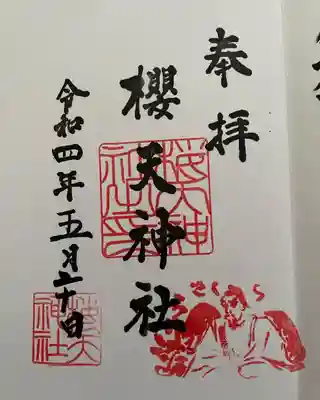 奉拝
櫻天神社
櫻天神社印
さくら
令和四年五月二十日
櫻天神社